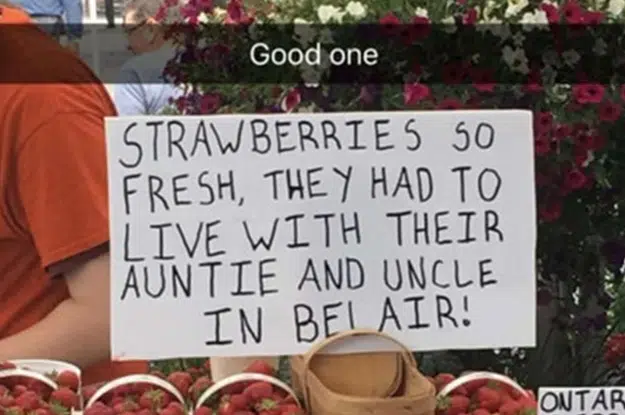 Good one
STRAWBERRIES SO
FRESH, THEY HAD TO
LIVE WITH THEIR
AUNTIE AND UNCLE
IN BEL AIR!
ONTAR